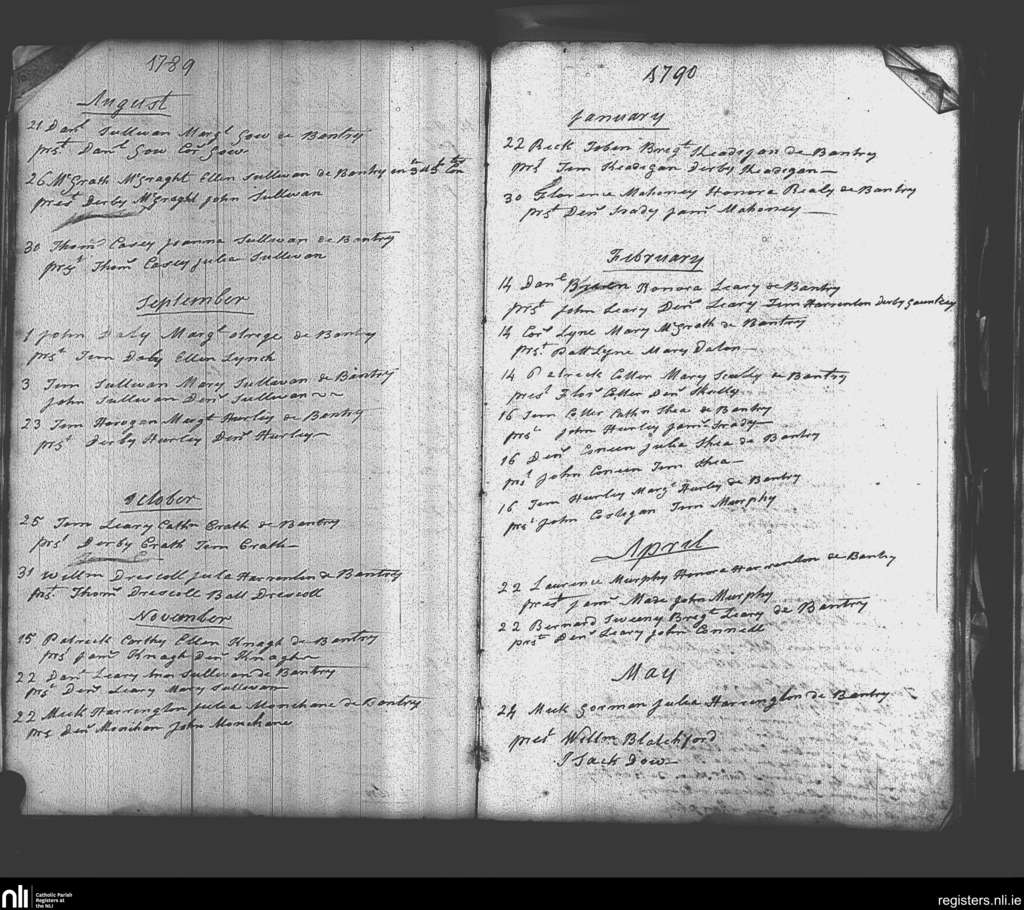 1789
August
21 Danl Sullivan Margt Gow de Bantry
prst Danl Gow Cors Gow
26 McGrath McGraght Ellen Sullivan de Bantry in 3d
prest Derby McGraght John Sullivan
30 Thoms Casey Joanna Sullivan de Bantry
prst Thoms Casey Julia Sullivan
September
1 John Daly Margt de Bantry
prst Tem Daly Ellen Lynch
3 Tem Sullivan Mary Sullivan de Bantry
John Sullivan Dens Sullivan
23 Tem Horogan Margt Hurley de Bantry
prst Derby Hurley Dens Hurley
October
25 Tem Leary Cathn Crath de Bantry
prst Derby Crath Tem Crath
31 Willm Drescoll Jula Harrenton de Bantry
prst Thoms Drescoll Batt Drescoll
November
15 Patreck Carthy Ellen Knagh de Bantry
prst Jams Knagh Dens Knagha
22 Danl Leary Sullivan de Bantry
prst Dens Leary Mary Sullivan
22 Meck Harrington Julea Monehane de Bantry
prs Dens Monihan John Monehane
1790
January
22 Reck Tobin Bregt Headegan de Bantry
prst Tem Headegan Derby Headegan
30 Florence Mahoney Honora Realy de Bantry
prst Dens Irady Jams Mahoney
February
14 Danl Honora Leary de Bantry
prst John Leary Dens Leary Tem Harrenton Derby
14 Cors Lyne Mary McGrath de Bantry
prst Patt Lyne Mary Dalon
14 Patreck Coller Mary Scully de Bantry
prest Flors Coller Dens Skully
16 Tem Coller Cathn Shea de Bantry
prst John Hurley Jams Irady
16 Dens Coneen Julia Shea de Bantry
prst John Coneen Tem Shea
16 Tem Hurley Margt Hurley de Bantry
prst John Costegan Tem Murphy
April
22 Laurence Murphy Honora Harrenton de Bantry
prest Jams Made John Murphy
22 Bernard Sweeny Bregt Leary de Bantry
prst Dens Leary John Connell
May
24 Meck Gorman Julea Harrengton de Bantry
prest Willm Blatchford
Isack Dow
nli
Catholic Parish
Registers at
the NLI
registers.nli.ie